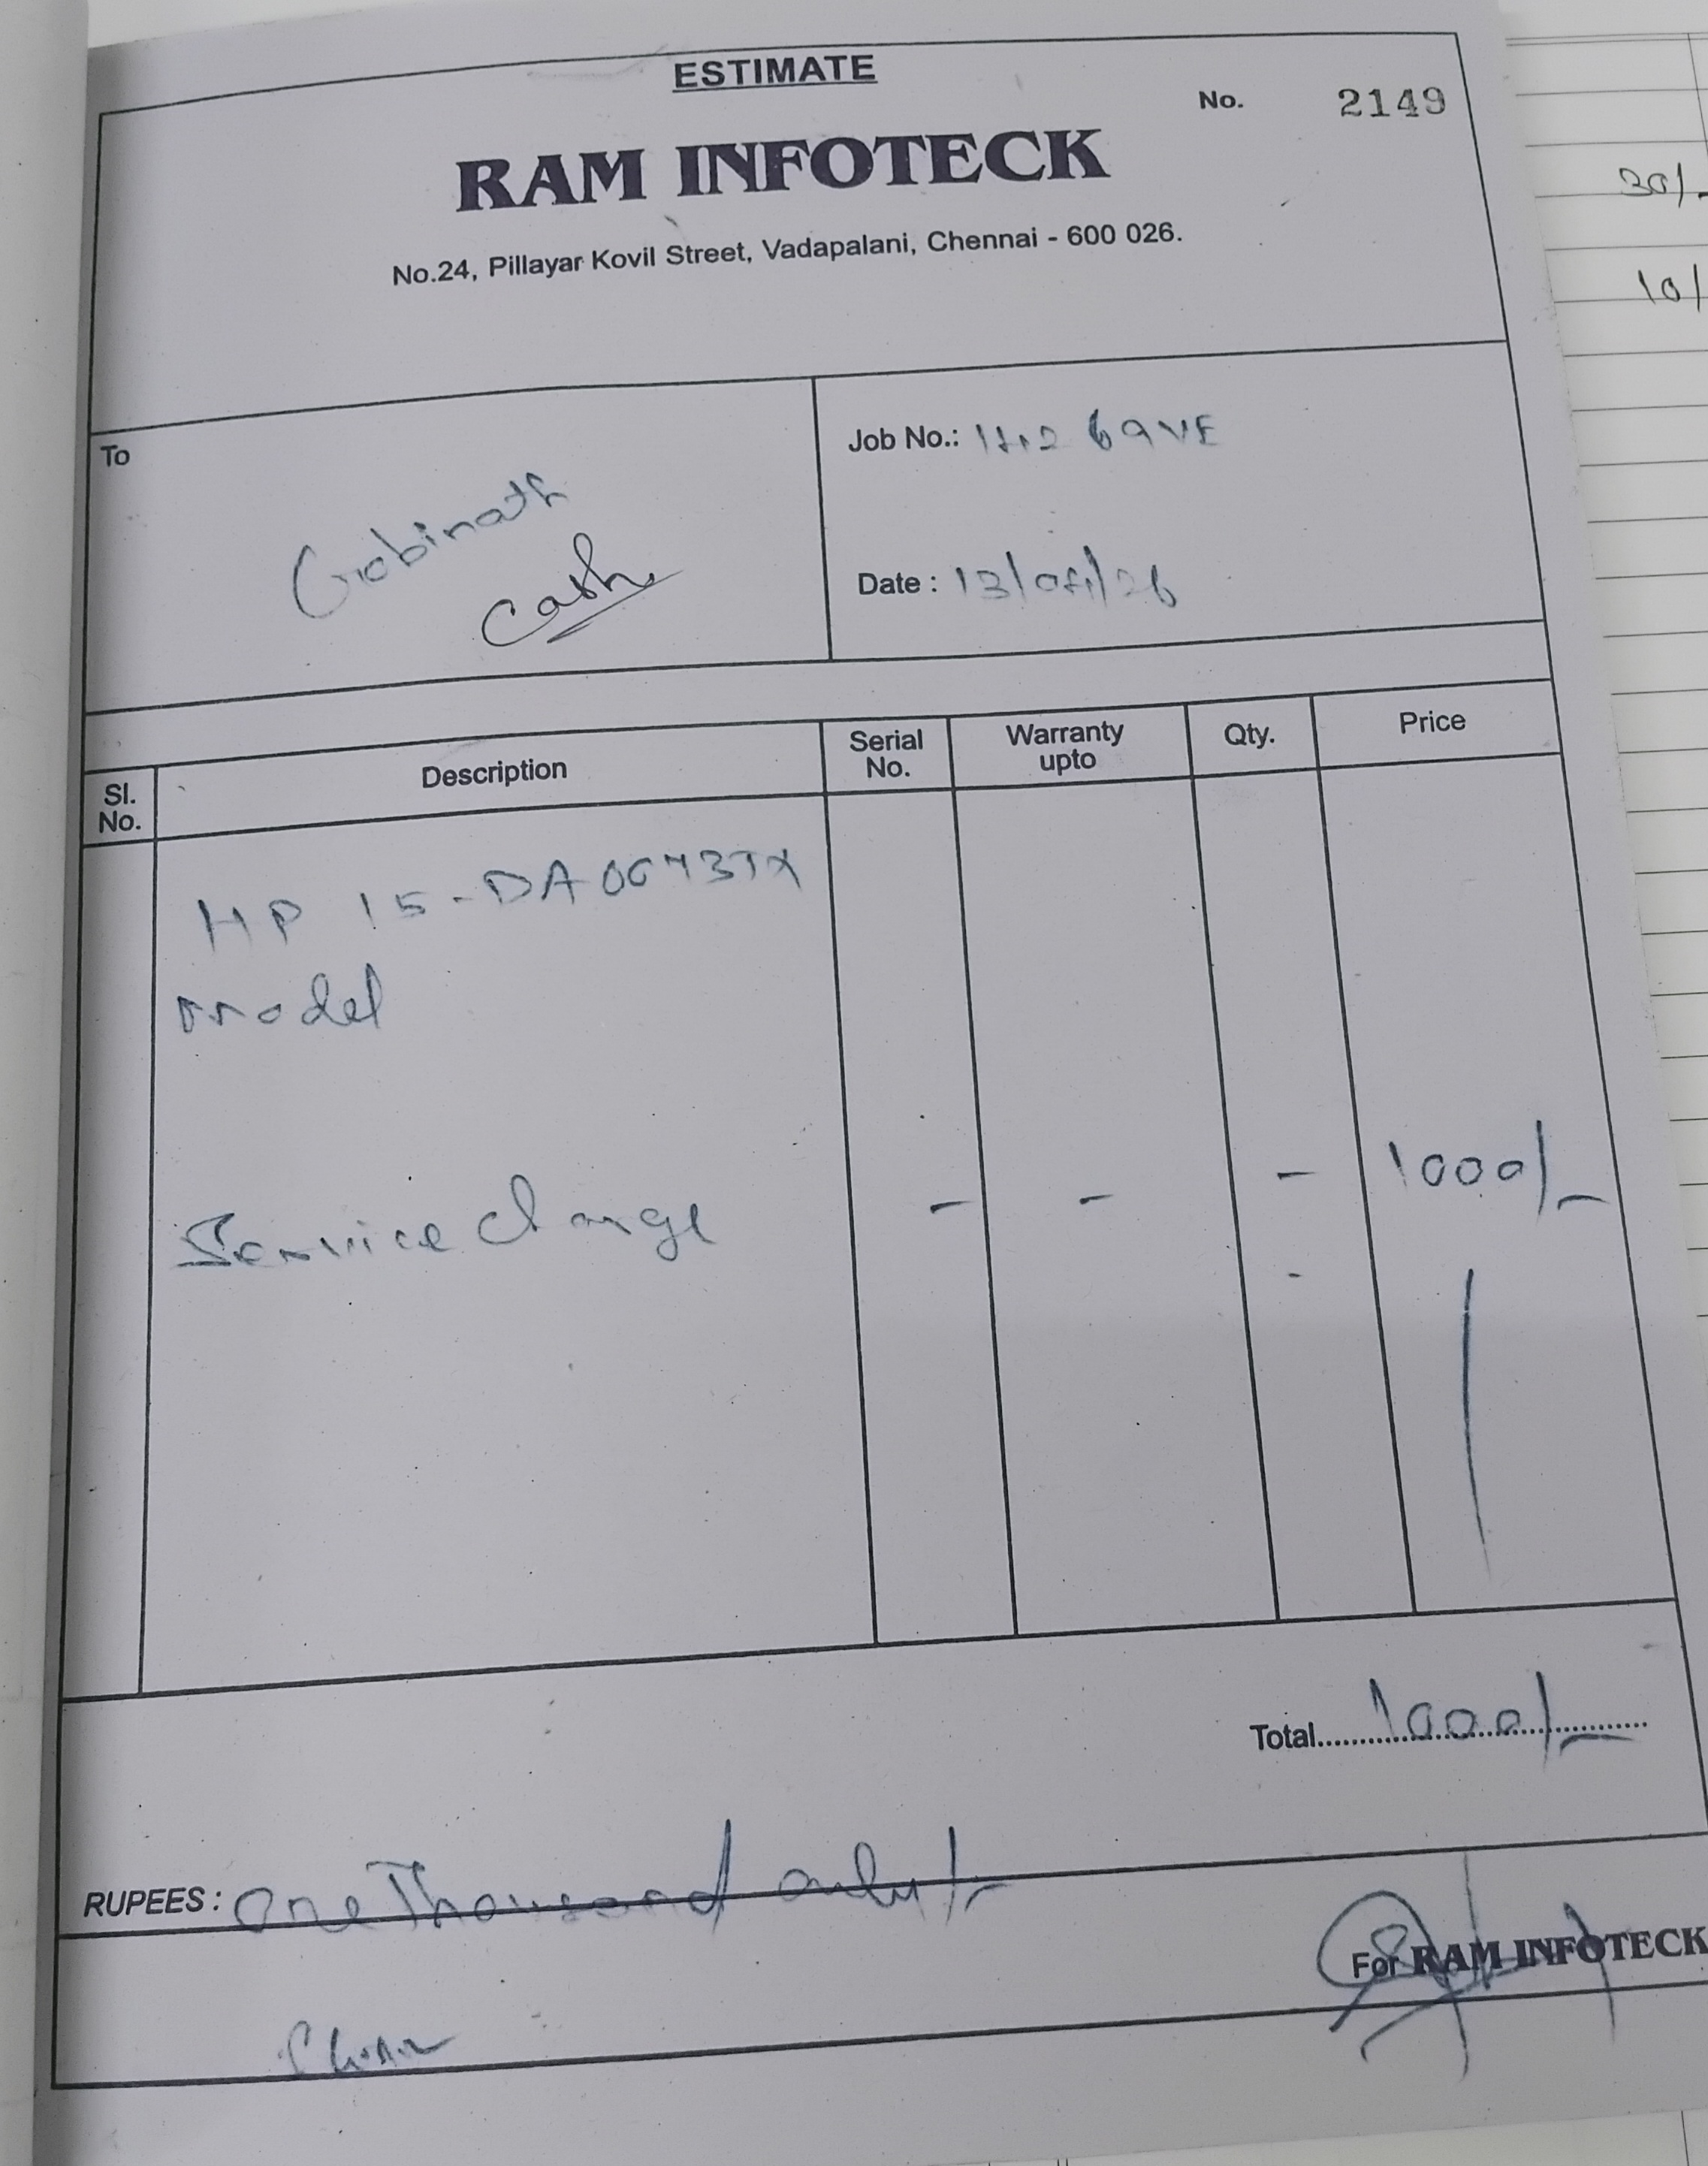 ESTIMATE
No. 2149
RAM INFOTECK
No.24, Pillayar Kovil Street, Vadapalani, Chennai - 600 026.
30/-
10/
To
Gobinath
Cash
Job No.:
Date : 13/
Sl. No. Description Serial No. Warranty upto Qty. Price
HP 15-DA0073TX
model
Service charge - - - 1000/-
Total 1000/-
RUPEES : One Thousand only/-
For RAM INFOTECK